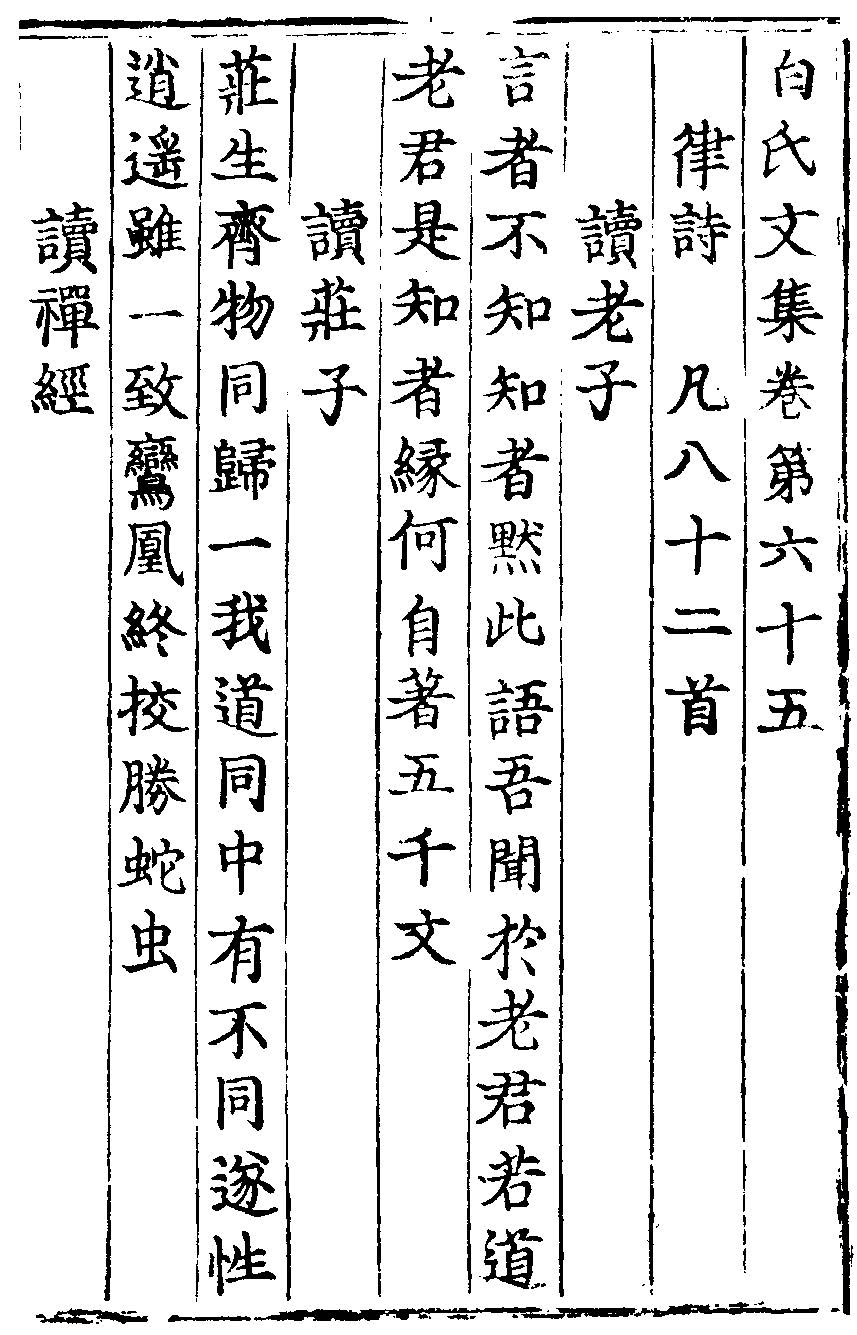 白氏文集卷第六十五
律詩　凡八十二首
讀老子
言者不知知者黙此語吾聞於老君若道
老君是知者縁何自著五千文
讀莊子
莊生齊物同歸一我道同中有不同遂性
逍遥雖一致鸞凰終挍勝蛇虫
讀禪經